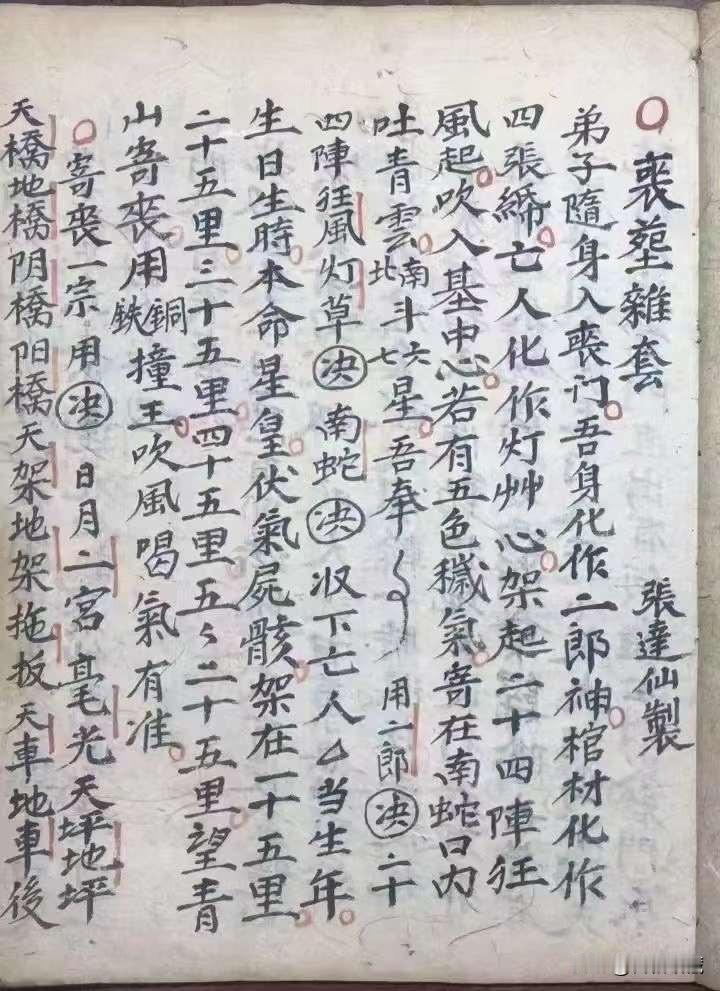 ○喪墓雜套 張達仙製
弟子隨身入喪门。吾身化作二郎神。棺材化作
四張締。亡人化作灯艸心。架起二十四陣狂
風起。吹入墓中心。若有五色穢氣。寄在南蛇口内
吐青雲。南北斗六七星。吾奉 用二郎決二十
四陣狂風灯草決南蛇決収下亡人△当生年。
生日生時。本命星皇伏氣屍骸。架在一十五里。
二十五里。三十五里四十五里五々二十五里望青
山寄喪。用銅鉄撞。王吹風喝氣有准。
○寄喪一宗用決日月二宮毫光天坪地坪
天橋地橋阴橋阳橋天架地架拖扳天車地車後